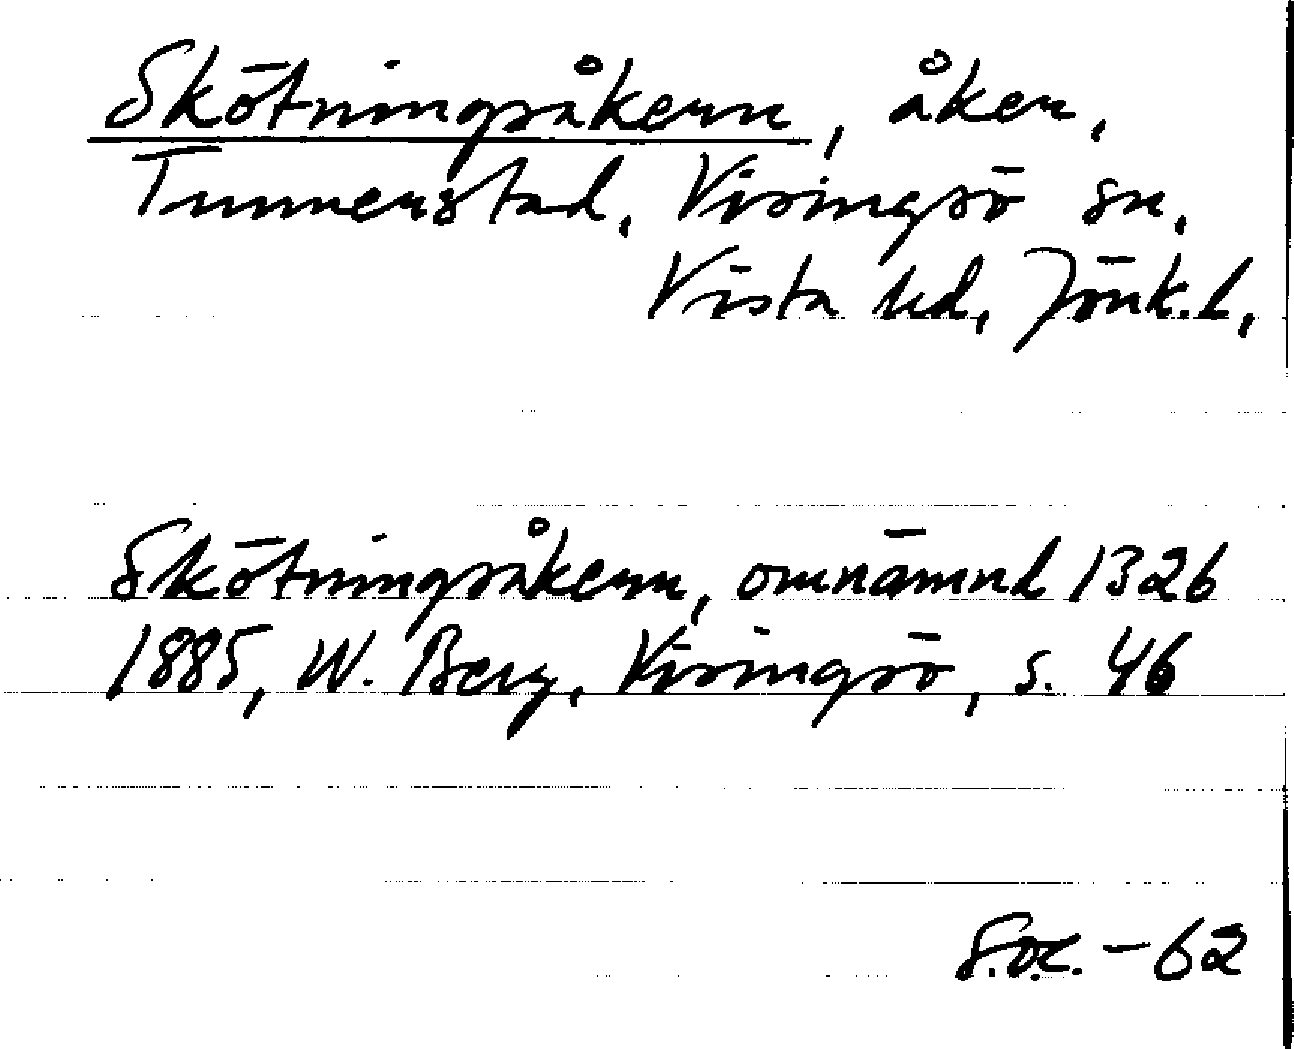 Skötningsåkern, åker,
Tunnerstad, Visingsö sn,
Vista hd, Jönk.l,
Skötningsåkern, omnämnd 1326
1885, W. Berg, Visingsö, s. 46
S.O.L. - 62